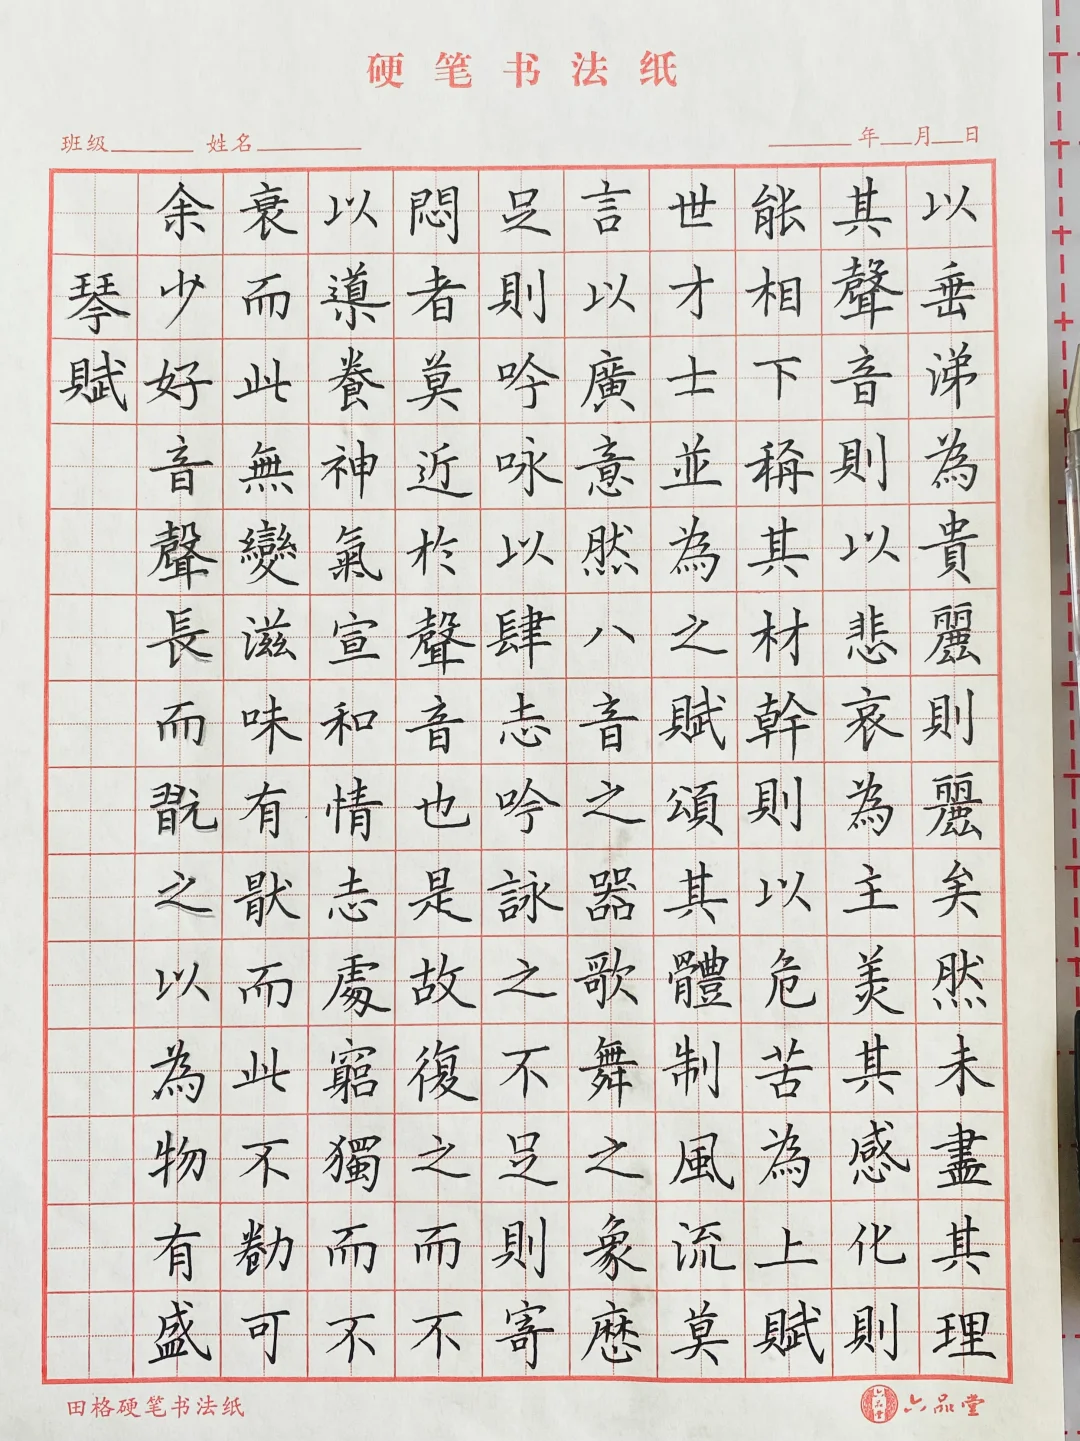 硬笔书法纸
班级 姓名 年 月 日
琴賦
余少好音聲長而翫之以為物有盛
衰而此無變滋味有猒而此不勌可
以導養神氣宣和情志處窮獨而不
悶者莫近於聲音也是故復之而不
足則吟咏以肆志吟詠之不足則寄
言以廣意然八音之器歌舞之象歷
世才士並為之賦頌其體制風流莫
能相下稱其材幹則以危苦為上賦
其聲音則以悲哀為主美其感化則
以垂涕為貴麗則麗矣然未盡其理
田格硬笔书法纸
六品堂 六品堂